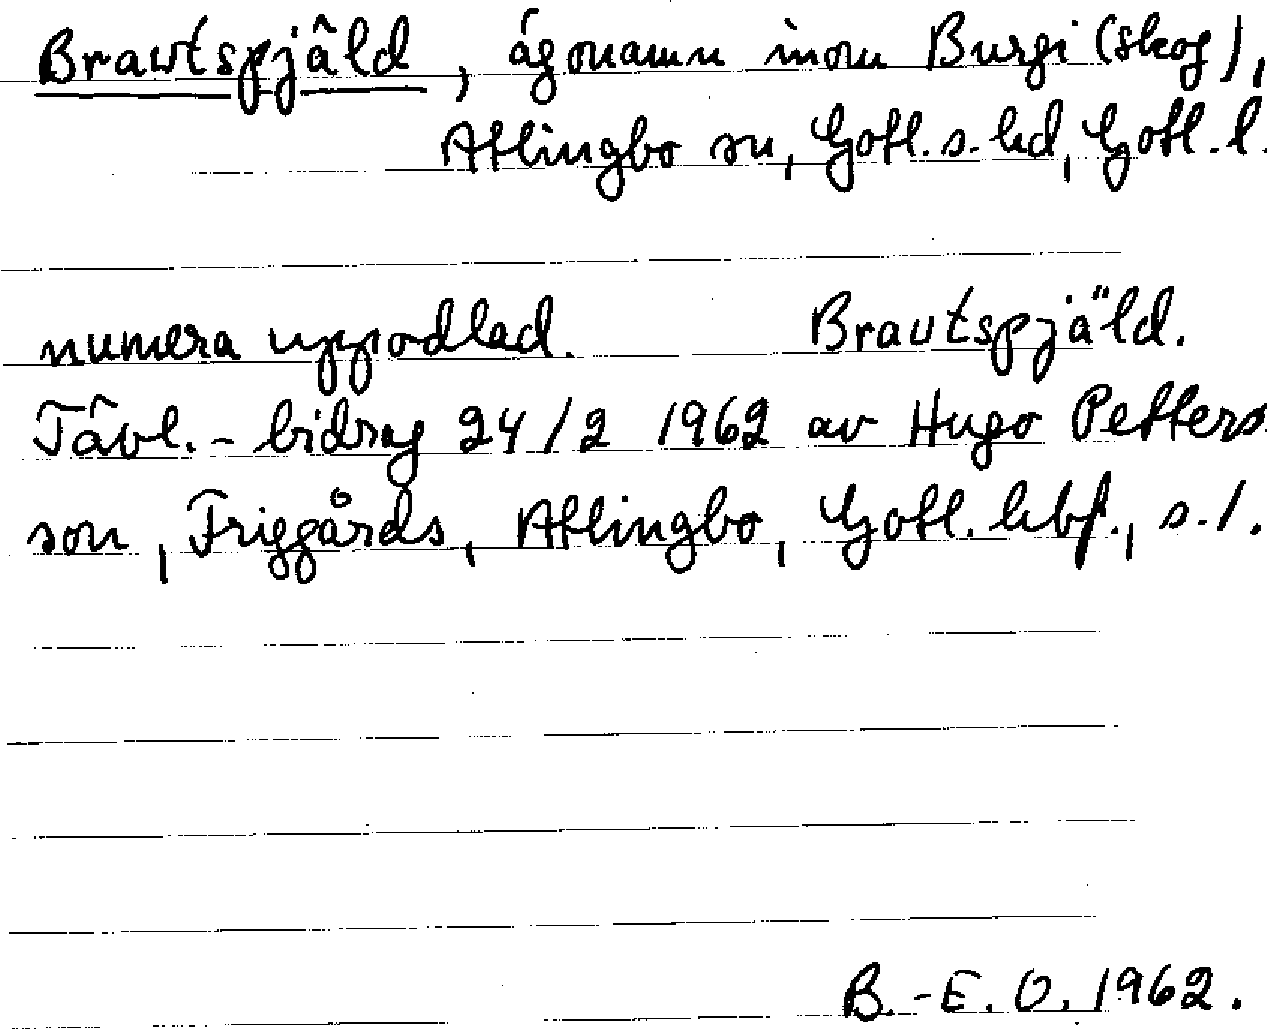 Brautspjâld, ägonamn inom Burgi (skog),
Atlingbo sn, Gotl. s. hd, Gotl. l.
numera uppodlad. Brautspjäld.
Tävl.-bidrag 24/2 1962 av Hugo Petters
son, Friggårds, Atlingbo, Gotl. hbf., s. 1.
B.-E. O. 1962.